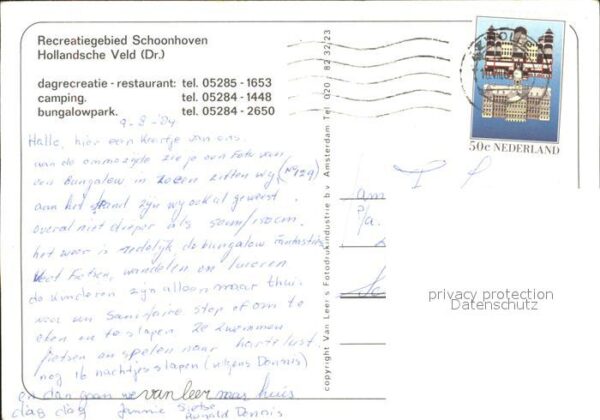 Recreatiegebied Schoonhoven
Hollandsche Veld (Dr.)
dagrecreatie - restaurant: tel. 05285 - 1653
camping. tel. 05284 - 1448
bungalowpark. tel. 05284 - 2650
9-8-'84
Hallo, hier een kaartje van ons.
van de ommezijde zie je een foto van
een Bungalow in zoeen zitten wy (No 129)
aan het strand zyn wy ook al geweest.
overal niet dieper als
het weer is redelyk, de bungalow fantastisch
Veel Fietsen, wandelen en luieren
de kinderen zyn alleen maar thuis
voor een Sanitaire stop of om te
eten en te slapen. Ze zwemmen
fietsen en spelen naar hartelust.
nog 16 nachtjes slapen (volgens Dennis)
en dan gaan we naar huis
van leer
dag dag Jannie Sietse
Ronald Dennis
copyright Van Leer's Fotodrukindustrie b.v. Amsterdam Tel. 020 - 82 32 23
ZWOLLE
50c NEDERLAND
Fam
P/a
privacy protection
Datenschutz